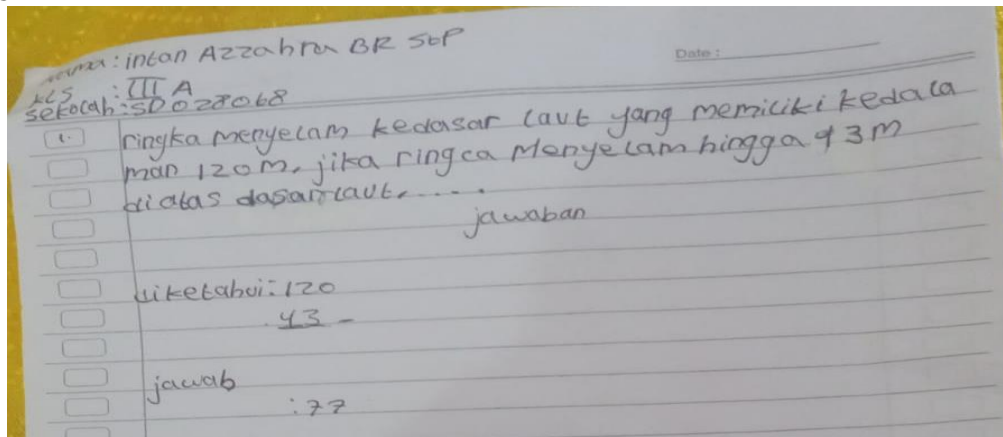 nama: intan Azzahra BR SbP
Date :
KLS : III A
sekolah: SD 028068
1. ringka Menyelam kedasar laut yang memiliki kedala
man 120 m, jika ringca Menyelam hingga 43 m
di atas dasar laut.....
jawaban
diketahui: 120
43 -
jawab
: 77